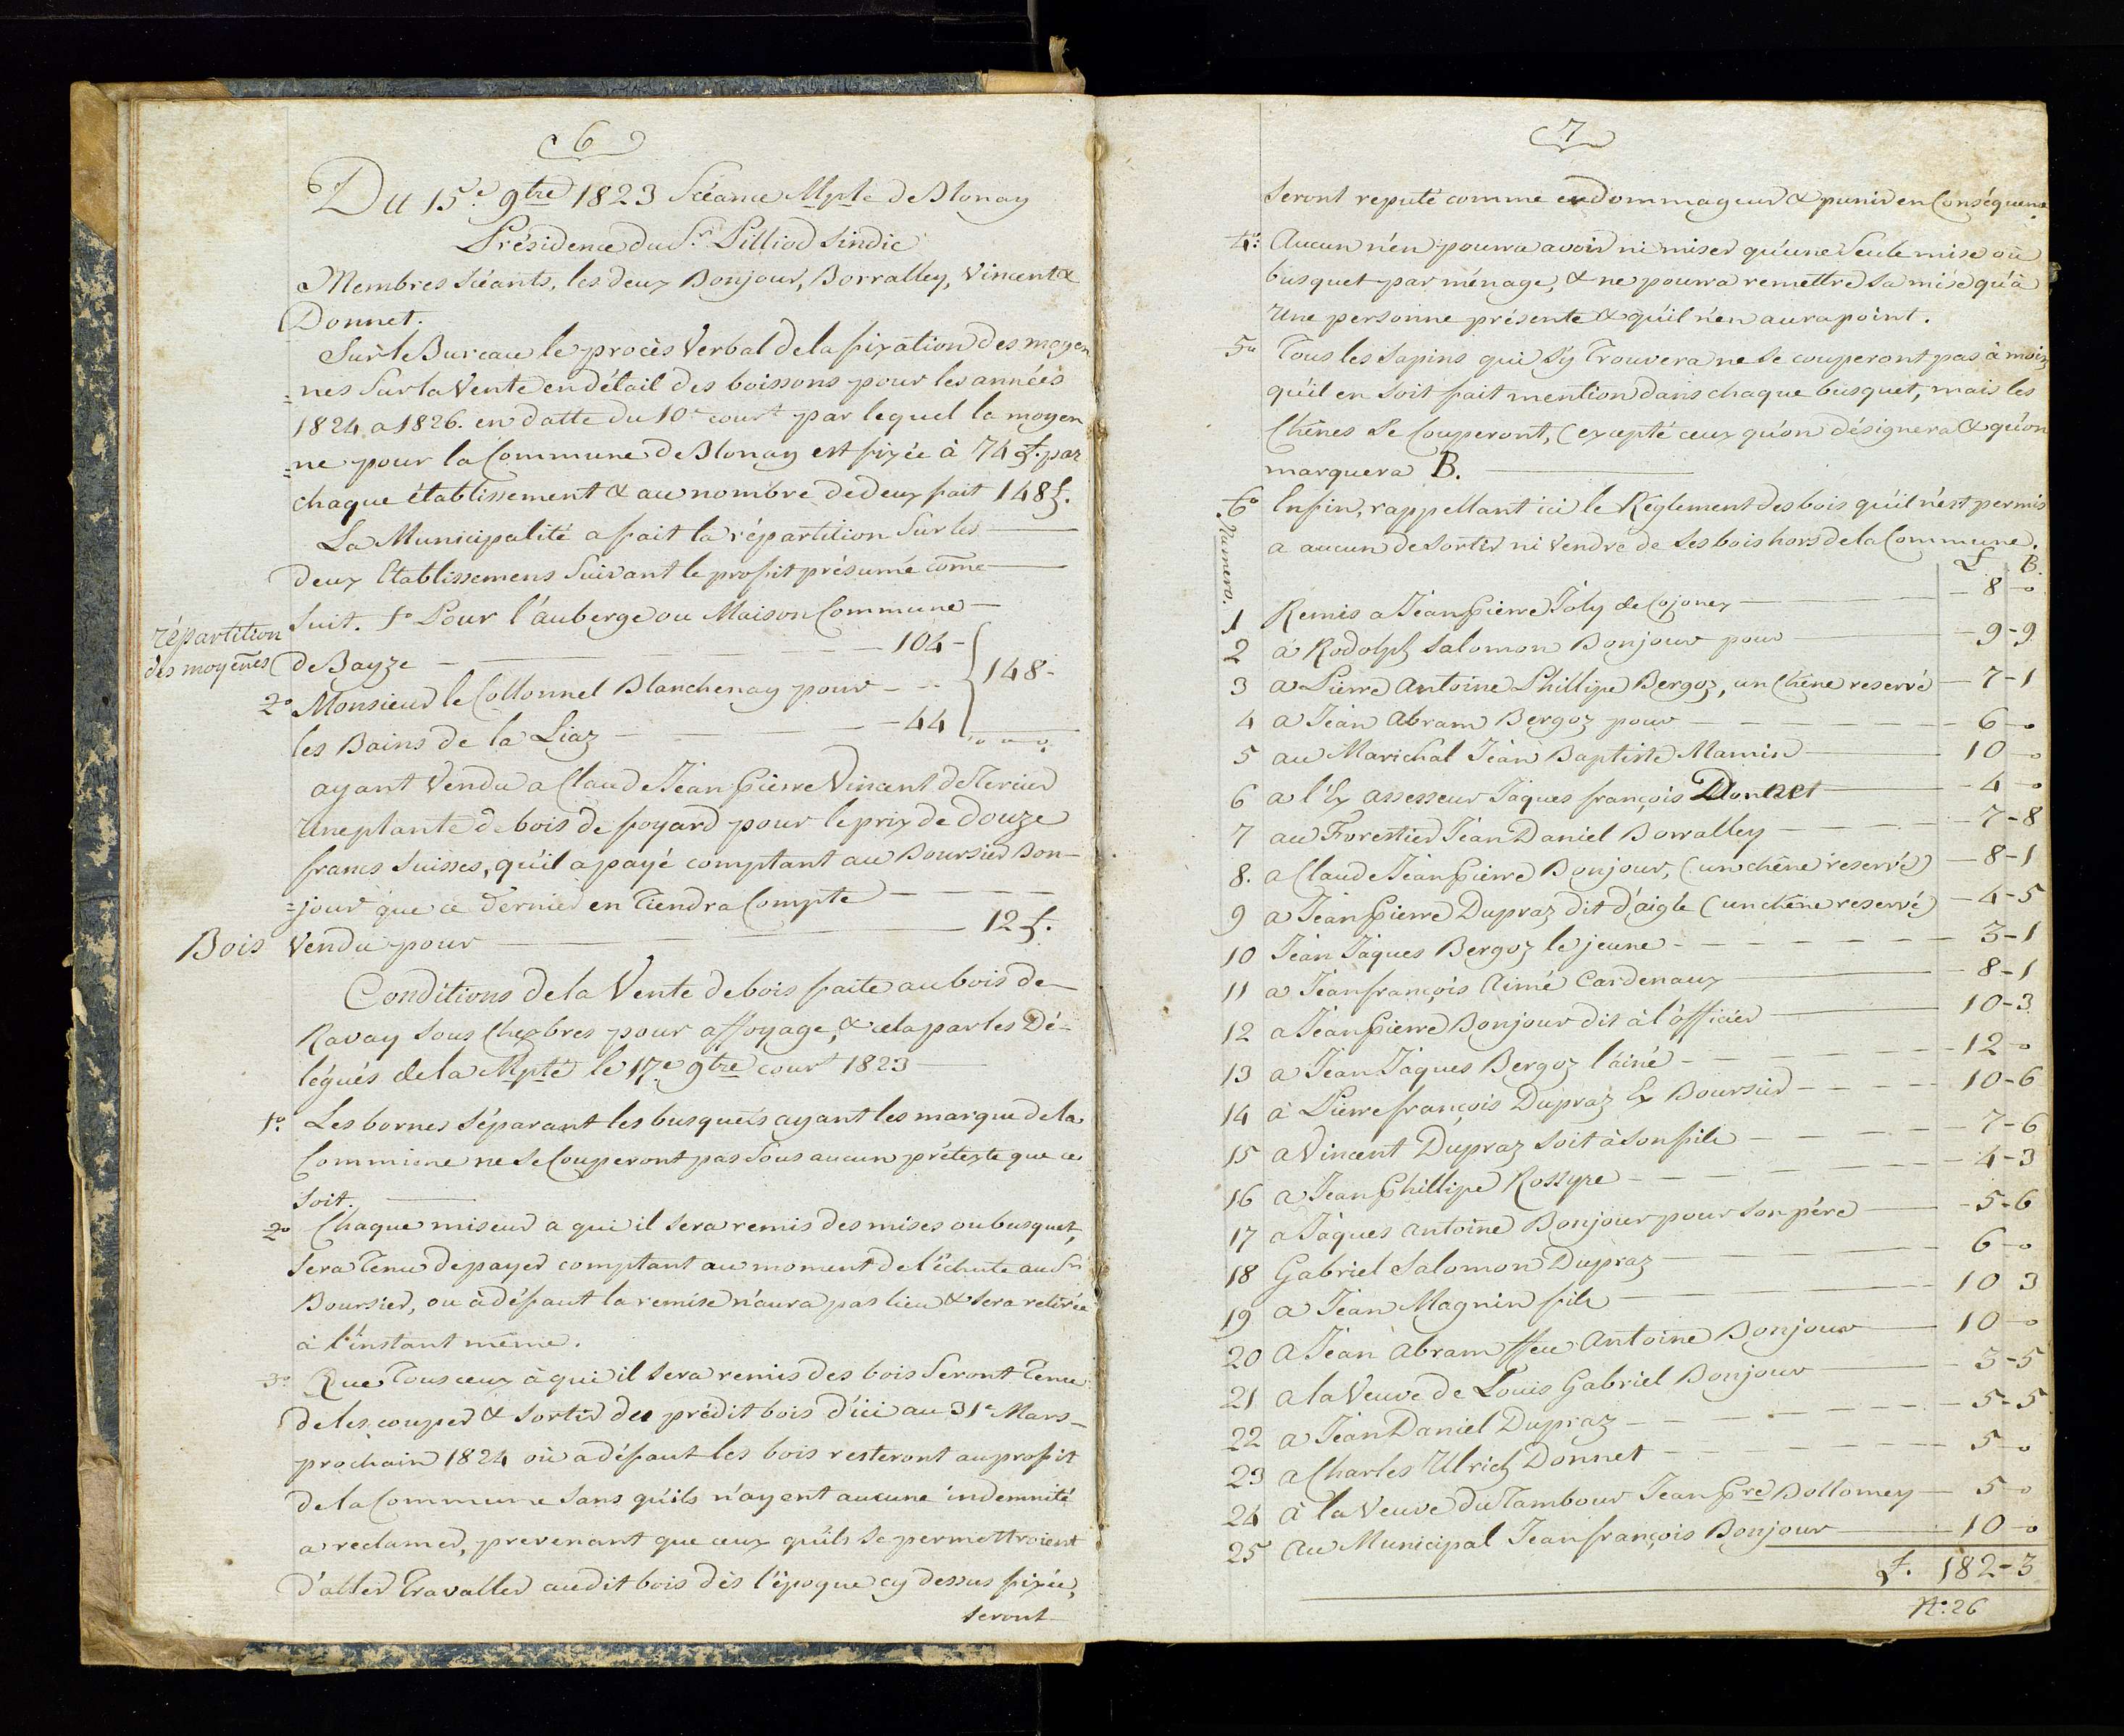 6
Du 15e. 9bre 1823 Scéance Mple de Blonay
Présidence du Sr. Pilliod Sindic
Membres Scéants, les deux Bonjour, Borralley, Vincent &
Donnet.
Sur le Bureau le procès Verbal de la fixation des moyen
=nes Sur la Vente en détail des boissons pour les années
1824 a 1826. en datte du 10e court par lequel la moyen
=ne pour la Commune de Blonay est fixée à 74 f. par
chaque établissement & au nombre de deux fait 148 f.
La Municipalité a fait la répartition Sur les
deux Etablissemens Suivant le profit présumé come
Suit. 1o Pour l'auberge ou Maison Commune
répartition
des moyenes
de Bayze — 104 -
148 -
2o Monsieur le Collonnel Blanchenay pour
les Bains de la Liaz — 44
ayant Vendu a Claude Jean Pierre Vincent de Tercier
Une plante de bois de foyard pour le prix de Douze
francs Suisses, qu'il a payé comptant au Boursier Bon-
=jour que ce dernier en Tiendra Compte
Bois Vendu pour — 12 f.
Conditions de la Vente de bois faite au bois de
Ravay Sous Chexbres pour affoyage, & cela par les Dé-
légués de la Mpté le 17e 9bre court 1823
1o. Les bornes Séparant les busquets ayant les marque de la
Commune ne Se Couperont pas Sous aucun prétexte que ce
Soit.
2o Chaque miseur a qui il Sera remis des mises ou busquet,
Sera Tenu de payer comptant au moment de l'échute au Sr
Boursier, ou à défaut la remise n'aura pas lieu & Sera retirée
à l'instant même.
3o Que Tous ceux à qui il Sera remis des bois Seront Tenu
de les couper & Sortir du prédit bois d'ici au 31e Mars
prochain 1824 où a défaut les bois resteront au profit
de la Commune Sans qu'ils n'ayent aucune indemnité
a reclamer, prevenant que ceux qu'ils Se permettroient
d'aller Travaller audit bois dès l'époque cy dessus fixée,
Seront
7
Seront reputé comme endommageur & punir en Conséquence
4o: Aucun n'en pourra avoir ni miser qu'une Seule mise ou
busquet par ménage, & ne pourra remettre Sa mise qu'à
Une personne présente & qu'il n'en aura point.
5o Tous les Sapins qui S'y Trouvera ne Se couperont pas à moins
qu'il en Soit fait mention dans chaque busquet, mais les
Chênes Se Couperont, (excepté ceux qu'on désignera & qu'on
marquera B.
6o Enfin, rappellant ici le Réglement des bois qu'il n'est permis
a aucun de Sortir ni Vendre de Ses bois hors de la Commune.
Numero. L B.
1 Remis a Jean Pierre Joly de Cojonex — 8 - o
2 à Rodolph Salomon Bonjour pour — 9 - 9
3 a Pierre Antoine Phillipe Bergoz, un Chêne reservé — 7 - 1
4 a Jean Abram Bergoz pour — 6 - o
5 au Marichal Jean Baptiste Mamin — 10 - o
6 a l'Ex assesseur Jaques françois Donnet — 4 - o
7 au Forestier Jean Daniel Borralley — 7 - 8
8. a Claude Jean Pierre Bonjour, (un chêne reservé) — 8 - 1
9 a Jean Pierre Dupraz dit d'aigle (un chêne reservé) — 4 - 5
10 Jean Jaques Bergoz le jeune — 3 - 1
11 a Jean françois Aimé Cardenaux — 8 - 1
12 a Jean Pierre Bonjour dit à l'officier — 10 - 3
13 a Jean Jaques Bergoz l'ainé — 12 - o
14 à Pierre françois Dupraz Ex Boursier — 10 - 6
15 a Vincent Dupraz Soit à Son fils — 7 - 6
16 a Jean Phillipe Rossyre — 4 - 3
17 a Jaques Antoine Bonjour pour Son père — 5 - 6
18 Gabriel Salomon Dupraz — 6 - o
19 a Jean Magnin fils — 10 3
20 a Jean Abram ffeu Antoine Bonjour — 10 - o
21 a la Veuve de Louis Gabriel Bonjour — 3 - 5
22 a Jean Daniel Dupraz — 5 - 5
23 a Charles Ulrich Donnet — 5 - o
24 à la Veuve du Tambour Jean Pre Dollomey — 5 - o
25 au Municipal Jean françois Bonjour — 10 - o
f. 182 - 3
No: 26